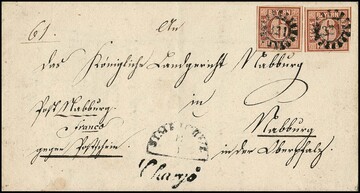 61.
An
das Königliche Landgericht Nabburg
in
Post Nabburg
Franco
gegen Postschein
Nabburg
in der Oberpfalz
Chargé